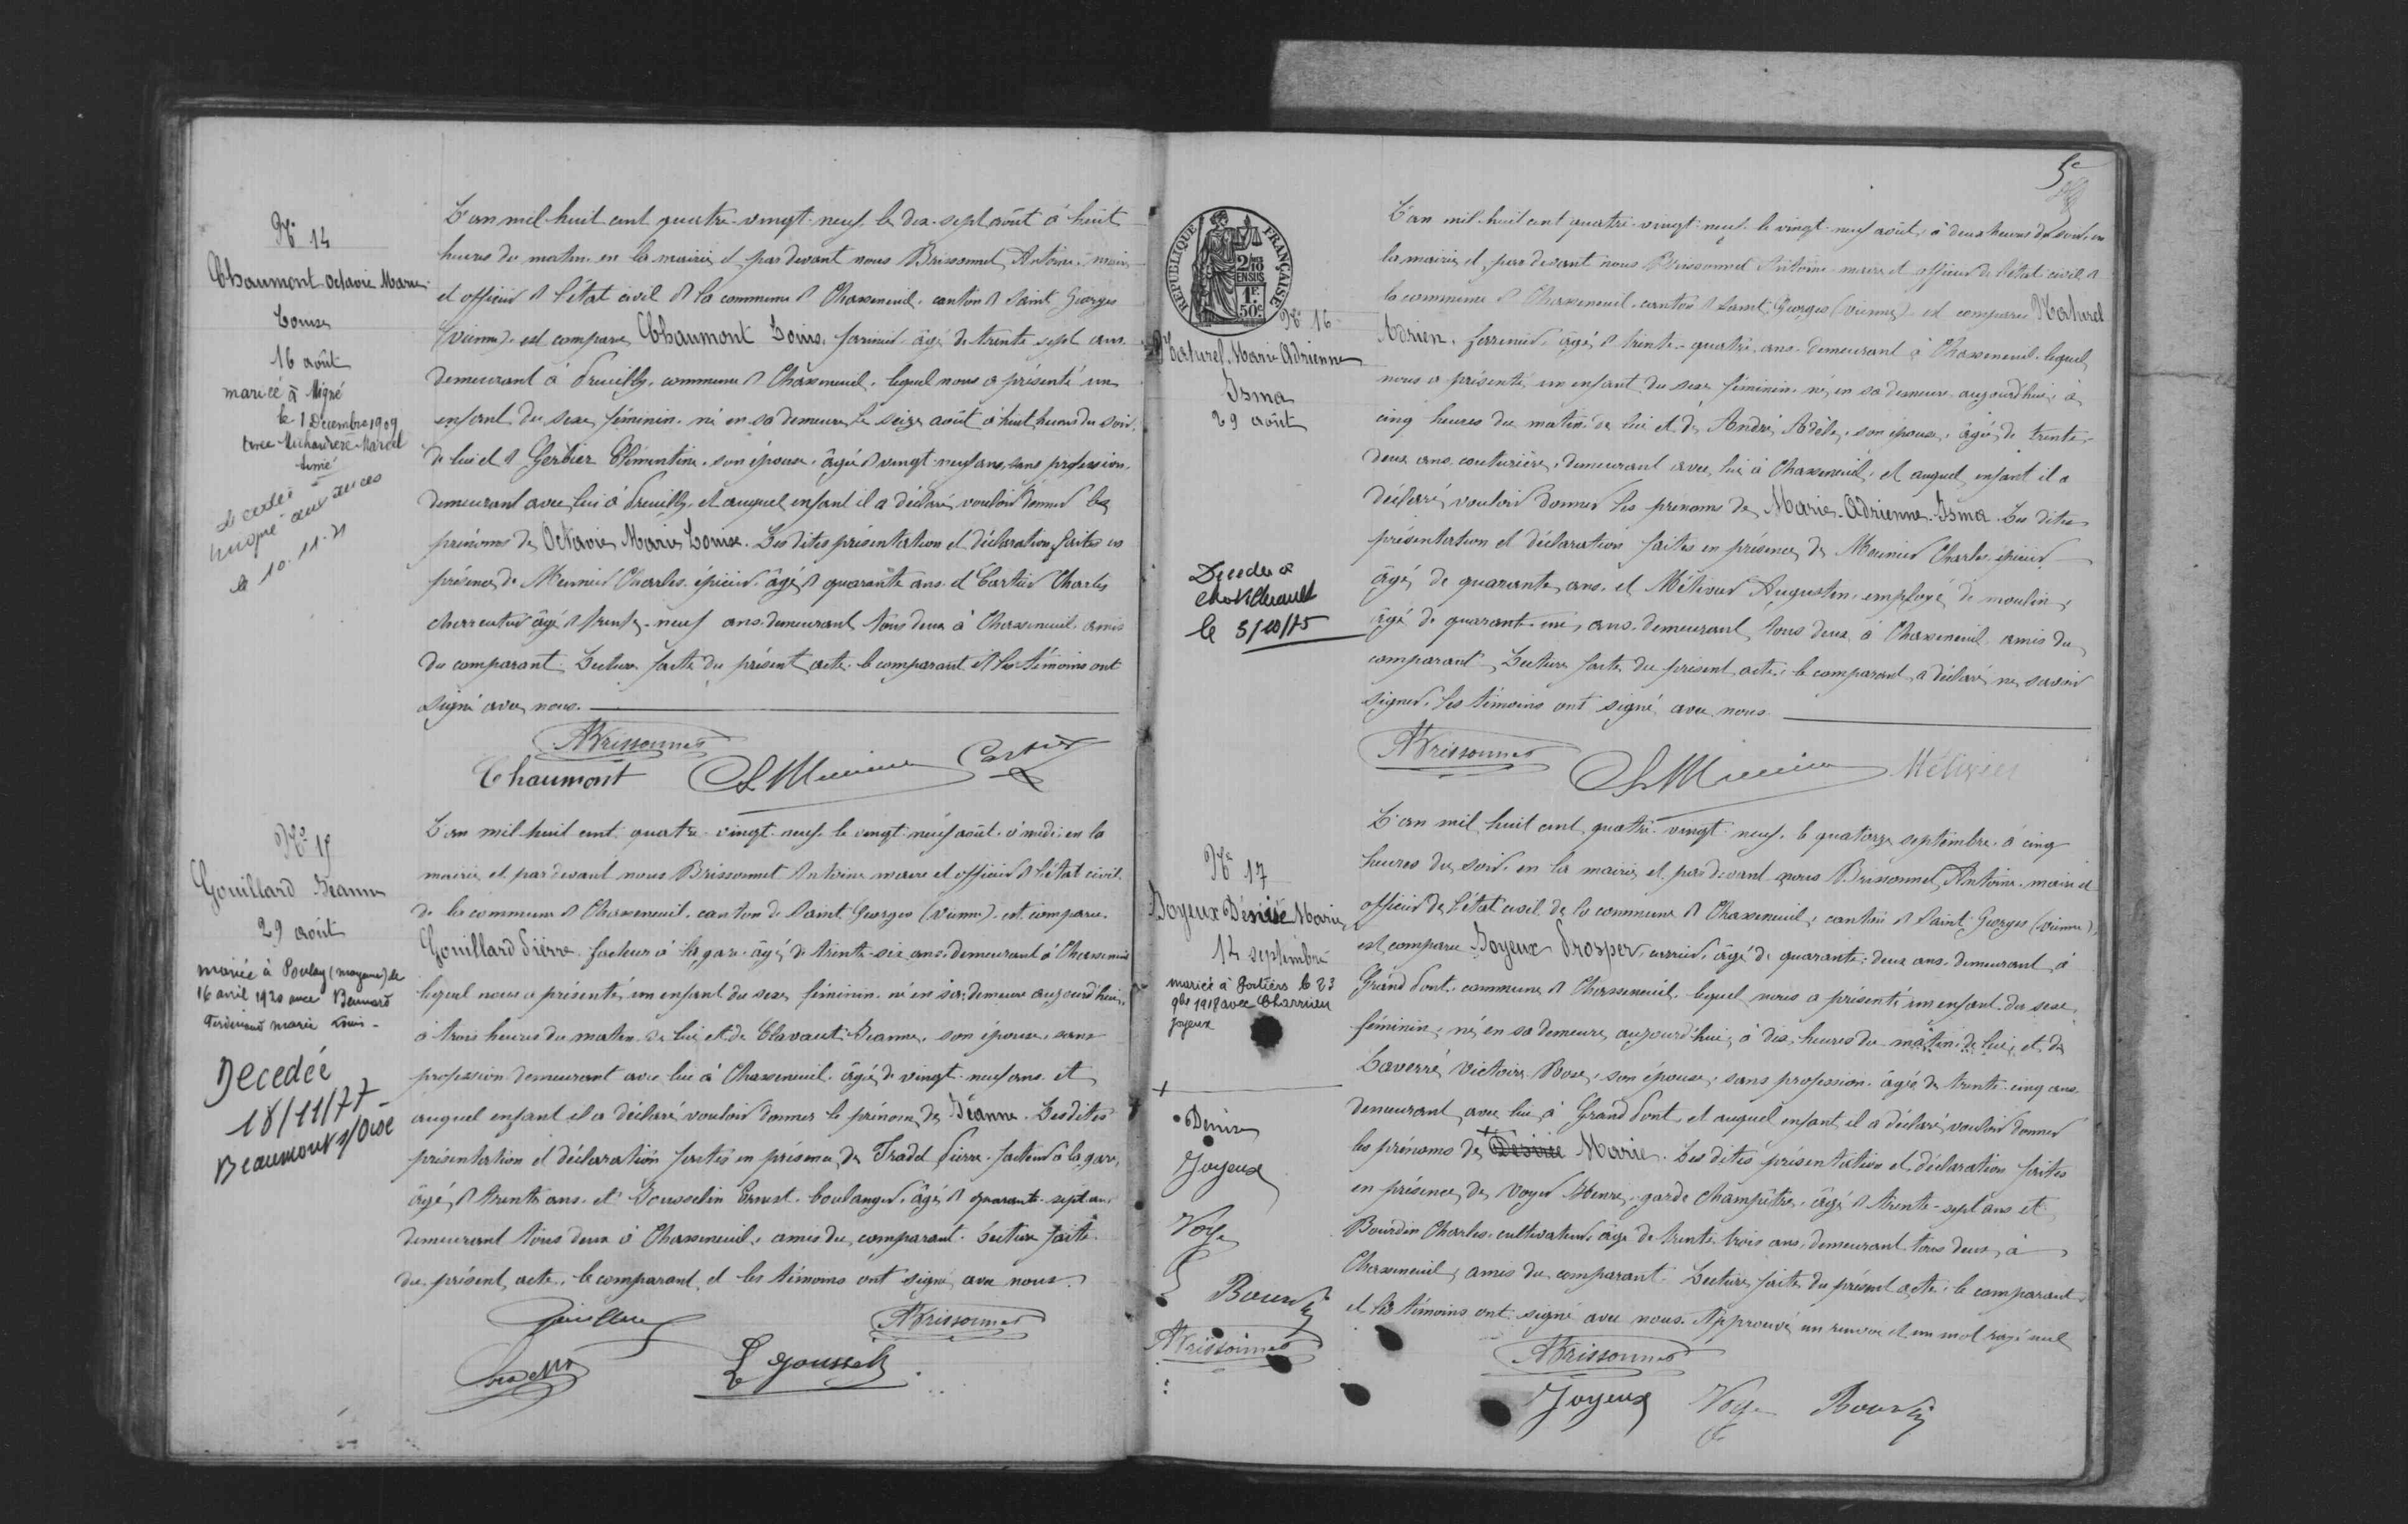 Nº 14
Chaumont Octavie Marie
Louise
16 août
mariée à Migné
le 1 Décembre 1909
avec Marcel
décédée à
Migné-auxances
le 10.11.71
L'an mil huit cent quatre-vingt-neuf, le dix-sept août à huit
heures du matin en la mairie et par devant nous Brissonnet Antoine, maire
et officier de l'état civil de la commune de Chasseneuil, canton de Saint Georges
(Vienne) est comparu Chaumont Louis, farinier âgé de trente sept ans
demeurant à Preuilly, commune de Chasseneuil, lequel nous a présenté un
enfant du sexe féminin, né en sa demeure le seize août à huit heures du soir,
de lui et de Gerbier Clémentine, son épouse, âgée de vingt-neuf ans, sans profession,
demeurant avec lui à Preuilly, et auquel enfant il a déclaré vouloir donner les
prénoms de Octavie Marie Louise. Les dites présentation et déclaration faites en
présence de Meunier Charles, épicier, âgé de quarante ans et Cartier Charles
charcutier âgé de trente-neuf ans, demeurant tous deux à Chasseneuil, amis
du comparant. Lecture faite du présent acte, le comparant et les témoins ont
signé avec nous.
ABrissonnet
Chaumont Ch Meunier Cartier
Nº 15
Gouillard Jeanne
29 août
mariée à Poulay (mayenne) le
16 avril 1920 avec Besnard
Ferdinand marie Louis -
Decedée
18/11/77
Beaumont s/Oise
L'an mil huit cent quatre-vingt-neuf le vingt-neuf août, à midi en la
mairie et par devant nous Brissonnet Antoine maire et officier de l'état civil
de la commune de Chasseneuil, canton de Saint Georges (Vienne) est comparu
Gouillard Pierre, facteur à la gare, âgé de trente-six ans, demeurant à Chasseneuil
lequel nous a présenté un enfant du sexe féminin, né en sa demeure aujourd'hui,
à trois heures du matin, de lui et de Clavaud Jeanne, son épouse, sans
profession demeurant avec lui à Chasseneuil, âgée de vingt-neuf ans et
auquel enfant il a déclaré vouloir donner le prénom de Jeanne. Les dites
présentation et déclaration faites en présence de Fradet Pierre, facteur à la gare,
âgé de trente ans, et Jousselin Ernest, boulanger, âgé de quarante-sept ans
demeurant tous deux à Chasseneuil, amis du comparant. Lecture faite
du présent acte, le comparant et les témoins ont signé avec nous.
Gouillard ABrissonnet
Fradet E Jousselin
5e
RÉPUBLIQUE FRANÇAISE
2/10 EN SUS
1F 50c
Nº 16
Naturel Marie Adrienne
Isma
29 août
Decedee a
Chatellerault
le 5/10/75
L'an mil huit cent quatre-vingt-neuf, le vingt-neuf août, à deux heures du soir, en
la mairie et par devant nous Brissonnet Antoine maire et officier de l'état civil de
la commune de Chasseneuil, canton de Saint Georges (Vienne) est comparu Naturel
Adrien, farinier, âgé de trente-quatre ans, demeurant à Chasseneuil, lequel
nous a présenté un enfant du sexe féminin, né en sa demeure aujourd'hui, à
cinq heures du matin, de lui et de André Adèle, son épouse, âgée de trente-
deux ans, couturière, demeurant avec lui à Chasseneuil, et auquel enfant il a
déclaré vouloir donner les prénoms de Marie Adrienne Isma. Les dites
présentation et déclaration faites en présence de Meunier Charles épicier
âgé de quarante ans, et Métivier Augustin, employé de moulin,
âgé de quarante-un ans, demeurant tous deux à Chasseneuil, amis du
comparant. Lecture faite du présent acte, le comparant a déclaré ne savoir
signer, les témoins ont signé avec nous
ABrissonnet Ch Meunier Métivier
Nº 17
Joyeux Denise Marie
14 septembre
mariée à Poitiers le 23
9bre 1918 avec Charrier
Joyeux
+
Denise
Joyeux
Voyer
Bourdin
ABrissonnet
L'an mil huit cent quatre-vingt-neuf, le quatorze septembre, à cinq
heures du soir, en la mairie et par devant nous Brissonnet Antoine, maire et
officier de l'état civil de la commune de Chasseneuil, canton de Saint Georges (Vienne),
est comparu Joyeux Prosper, carrier, âgé de quarante-deux ans, demeurant à
Grand Pont, commune de Chasseneuil, lequel nous a présenté un enfant du sexe
féminin, né en sa demeure aujourd'hui, à dix heures du matin, de lui, et de
Laverré Victoire Rose, son épouse, sans profession, âgée de trente-cinq ans
demeurant avec lui à Grand Pont, et auquel enfant il a déclaré vouloir donner
les prénoms de + Désirée Marie. Les dites présentation et déclaration faites
en présence de Voyer Henri, garde champêtre, âgé de trente-sept ans et
Bourdin Charles, cultivateur, âgé de trente trois ans, demeurant tous deux à
Chasseneuil, amis du comparant. Lecture faite du présent acte, le comparant
et les témoins ont signé avec nous. Approuvé un renvoi et un mot rayé nul
ABrissonnet
Joyeux Voyer Bourdin